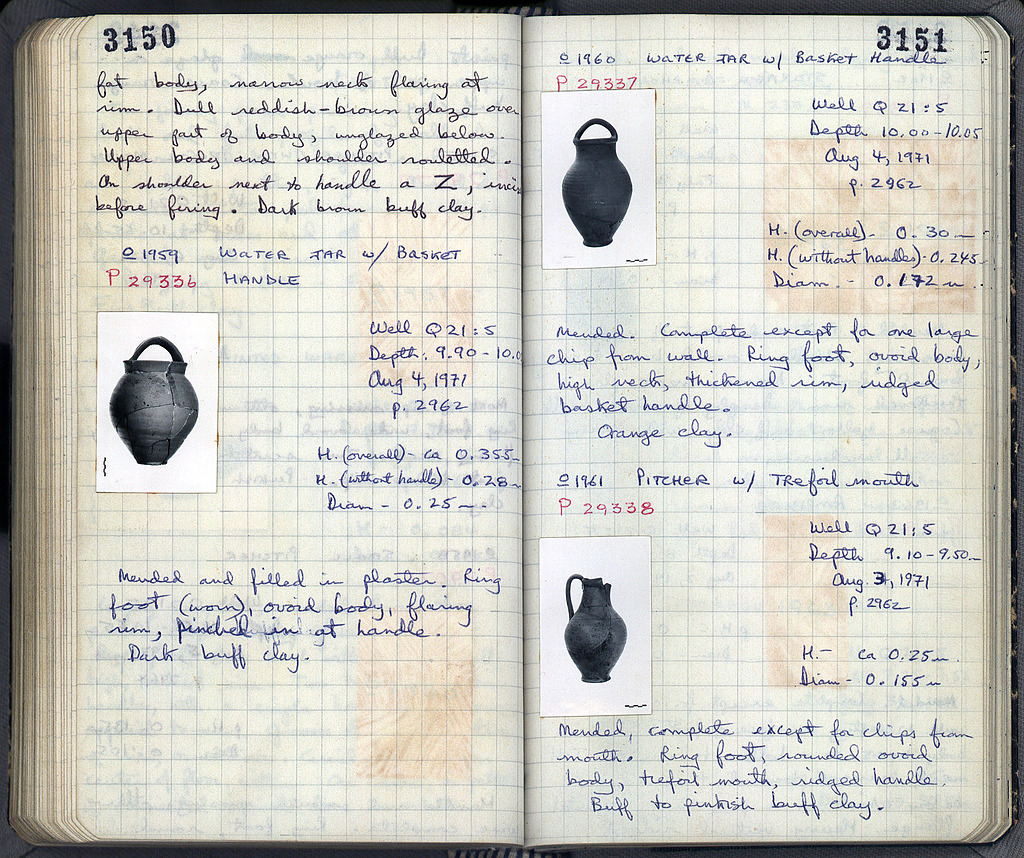 3150
fat body, narrow neck flaring at
rim. Dull reddish-brown glaze over
upper part of body, unglazed below.
Upper body and shoulder rouletted.
On shoulder next to handle a Z, incis
before firing. Dark brown buff clay.
o 1959 WATER JAR w/ BASKET
P 29336 HANDLE
Well Q 21:5
Depth: 9.90-10.0
Aug 4, 1971
p. 2962
H. (overall) - ca 0.355
H. (without handle) - 0.28
Diam - 0.25 m.
Mended and filled in plaster. Ring
foot (worn), ovoid body, flaring
rim, pinched in at handle.
Dark buff clay.
3151
o 1960 WATER JAR w/ Basket Handle
P 29337
Well Q 21:5
Depth 10.00-10.05
Aug 4, 1971
p. 2962
H. (overall) - 0.30 m
H. (without handles) - 0.245
Diam. - 0.172 m
Mended. Complete except for one large
chip from wall. Ring foot, ovoid body,
high neck, thickened rim, ridged
basket handle.
Orange clay.
o 1961 PITCHER w/ TREfoil mouth
P 29338
Well Q 21:5
Depth 9.10-9.50 m
Aug. 3, 1971
p. 2962
H. - ca 0.25 m.
Diam - 0.155 m
Mended, complete except for chips from
mouth. Ring foot, rounded ovoid
body, trefoil mouth, ridged handle.
Buff to pinkish buff clay.